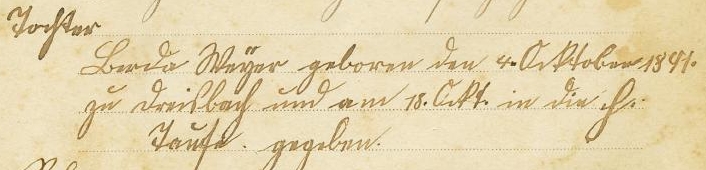 Tochter
Berda Weyer geboren den 4. Ocktober 1841.
zu Dreisbach und am 18. Ockt. in die h.
Taufe. gegeben.